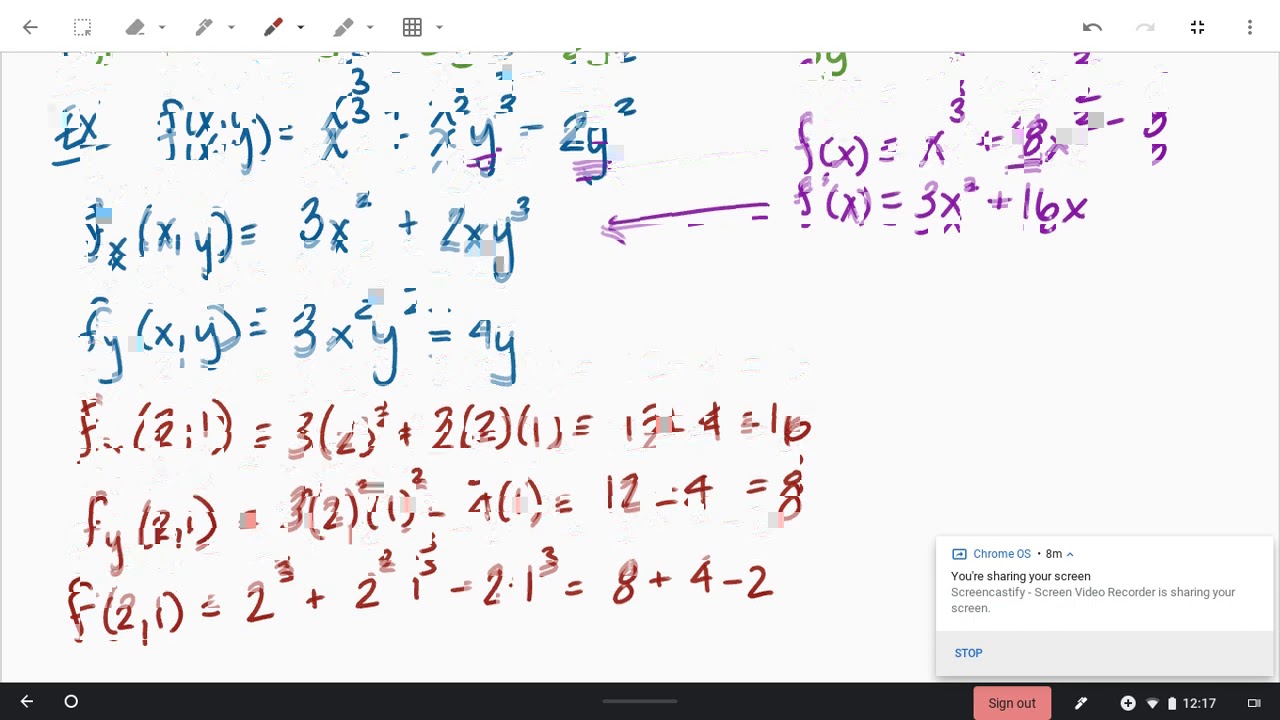 Ex f(x,y) = x³ + x²y³ - 2y²
f(x) = x³ + 8x² - 5
f'(x) = 3x² + 16x
fₓ(x,y) = 3x² + 2xy³
f_y(x,y) = 3x²y² - 4y
fₓ(2,1) = 3(2)² + 2(2)(1) = 12 + 4 = 16
f_y(2,1) = 3(2)²(1)² - 4(1) = 12 - 4 = 8
f(2,1) = 2³ + 2² 1³ - 2·1³ = 8 + 4 - 2
Chrome OS • 8m
You're sharing your screen
Screencastify - Screen Video Recorder is sharing your
screen.
STOP
Sign out
12:17